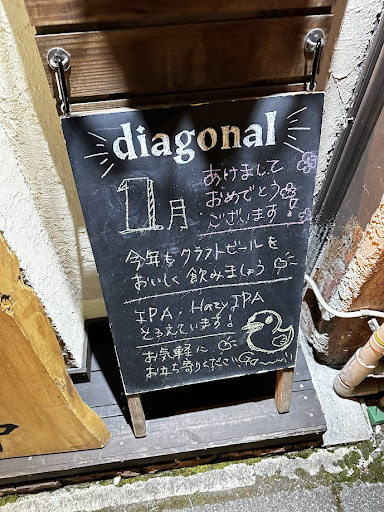 diagonal
1月
あけまして
おめでとう
ございます!
今年もクラフトビールを
おいしく飲みましょう
IPA・Hazy IPA
そろえています!
お気軽に
お立ち寄りください
Ga〜〜!